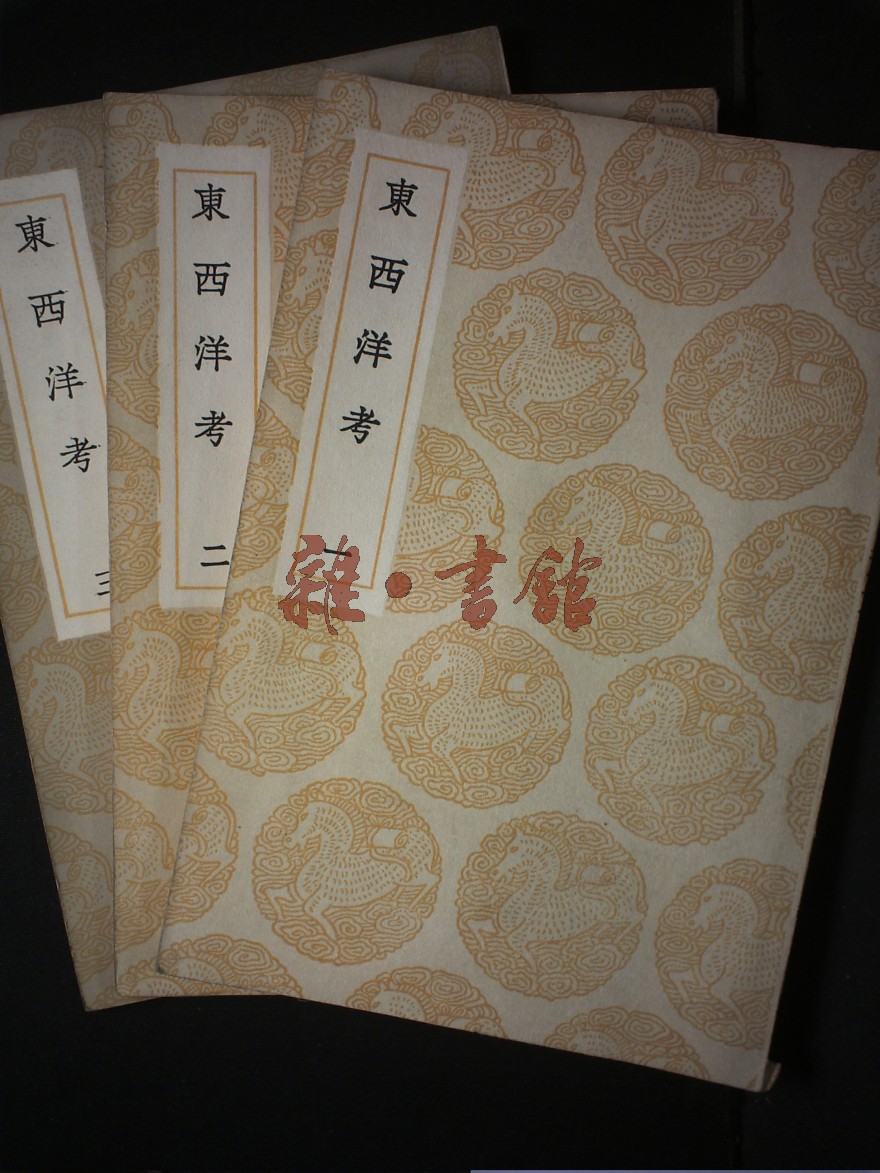 東西洋考 一
東西洋考 二
東西洋考 三
雜·書館